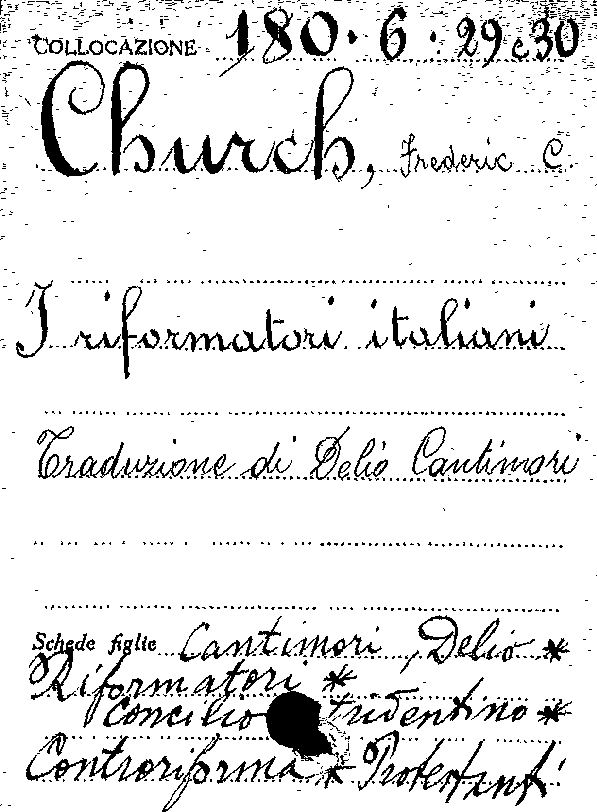 COLLOCAZIONE 180.6.29 e 30
Church, Frederic C.
I riformatori italiani
Traduzione di Delio Cantimori
Schede figlie Cantimori, Delio *
Riformatori *
Concilio tridentino *
Controriforma * Protestanti